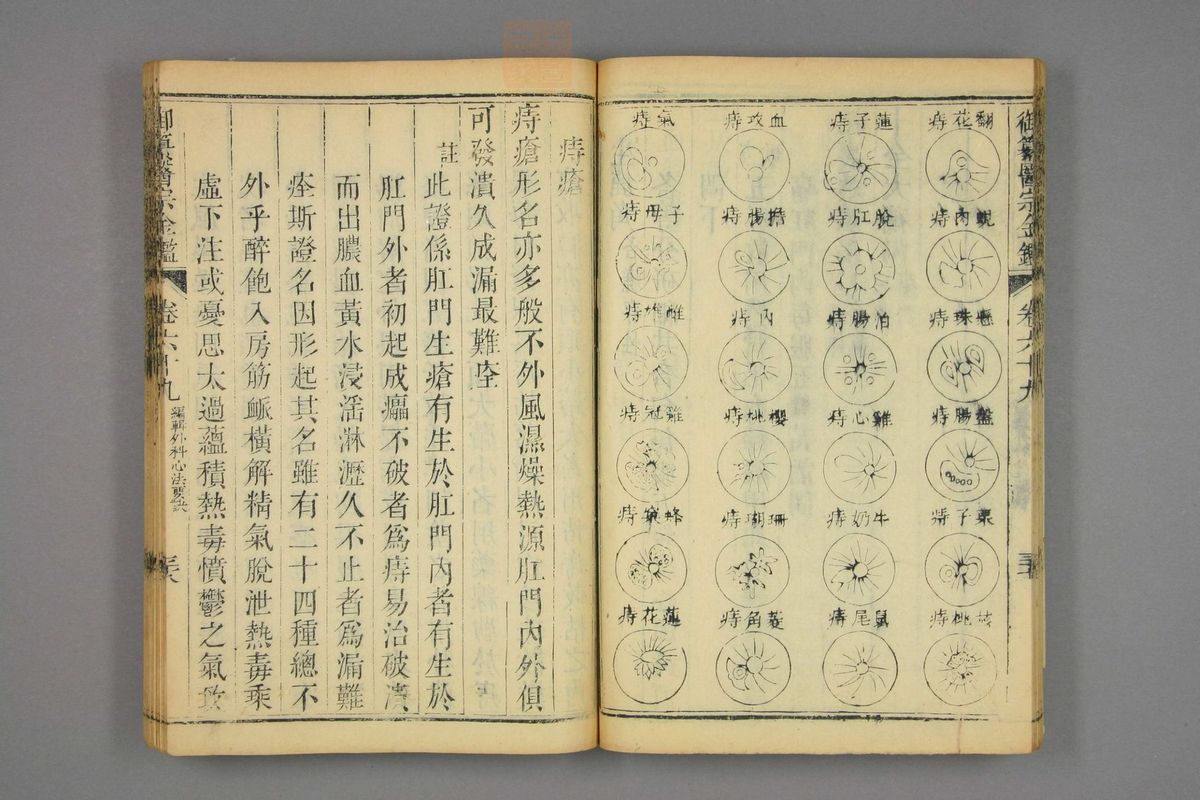 御纂醫宗金鑑 卷六十九
翻花痔
蓮子痔
血攻痔
氣痔
蜆肉痔
脫肛痔
擔腸痔
子母痔
懸珠痔
泊腸痔
內痔
雌雄痔
盤腸痔
雞心痔
櫻桃痔
雞冠痔
栗子痔
牛奶痔
珊瑚痔
蜂窠痔
核桃痔
鼠尾痔
菱角痔
蓮花痔
痔瘡
痔瘡形名亦多般不外風濕燥熱源肛門內外俱
可發潰久成漏最難痊
註
此證係肛門生瘡有生於肛門內者有生於
肛門外者初起成㿈不破者為痔易治破潰
而出膿血黃水浸滛淋瀝久不止者為漏難
痊斯證名因形起其名雖有二十四種總不
外乎醉飽入房筋脈橫解精氣脫泄熱毒乘
虛下注或憂思太過蘊積熱毒憤鬱之氣致
御纂醫宗金鑑 卷六十九 編輯外科心法要訣